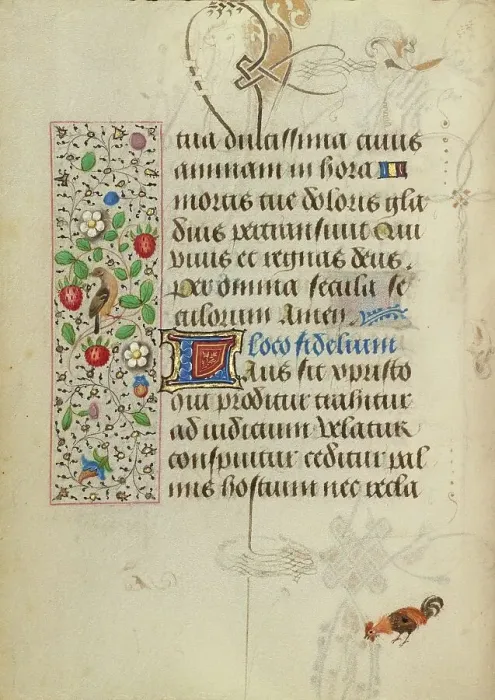 tua dulcissima cuius
animam in hora
mortis tue doloris gla
dius pertransiuit Qui
viuis et regnas deus.
per omnia secula se
culorum Amen.
loco fidelium
Laus sit xpristo
qui proditur trahitur
ad iudicium Velatur
conspuitur ceditur pal
mis hostium nec recla